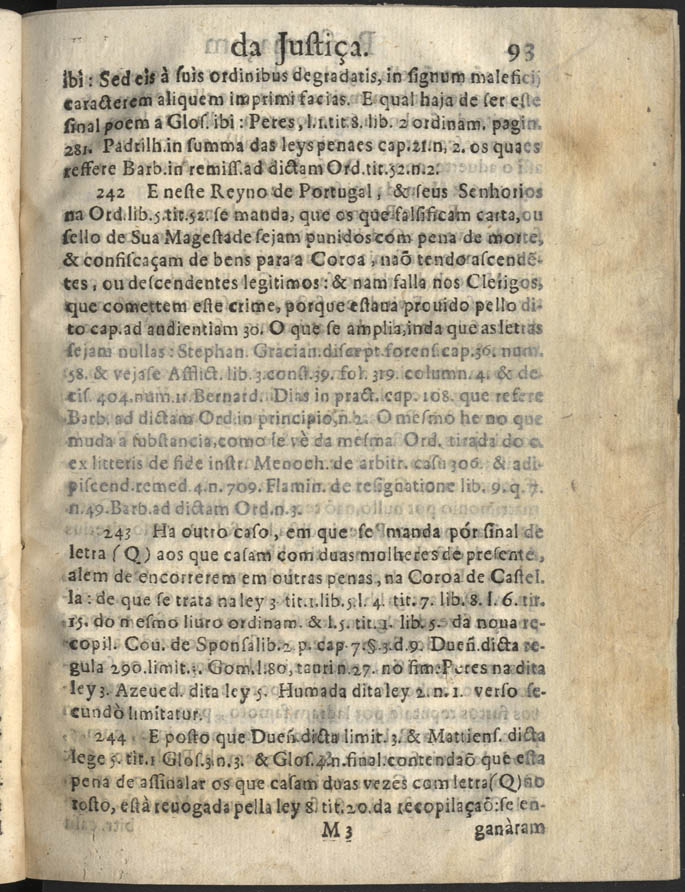 da Justiça. 93
ibi: Sed eis à suis ordinibus degradatis, in signum malefici;
caracterem aliquem imprimi facias. E qual haja de ser este
sinal poem a Glos. ibi: Peres, l.1.tit 8. lib. 2 ordinam. pagin.
281. Padrilh.in summa das leys penaes cap.21.n, 2. os quaes
reffere Barb.in remiss.ad dictam Ord.tit.52.n.2.
242 E neste Reyno de Portugal, & seus Senhorios
na Ord.lib.5.tit.52. se manda, que os que falsificam carta,ou
sello de Sua Magestade sejam punidos com pena de morte,
& confiscaçam de bens para a Coroa, naõ tendo ascendẽ-
tes, ou descendentes legitimos: & nam falla nos Clerigos,
que comettem este crime, porque estaua prouido pello di-
to cap.ad audientiam 30. O que se amplia,inda que as letras
sejam nullas: Stephan. Gracian.discept.forens.cap.36. num.
58. & vejase Afflict. lib. 3.const.39. fol. 319. column. 4. & de-
cis. 404.num.11 Bernard. Dias in pract. cap. 108. que refere
Barb. ad dictam Ord.in principio,n.2. O mesmo he no que
muda a substancia,como se vè da mesma Ord. tirada do c.
ex litteris de fide instr. Menoch. de arbitr. casu 306. & adi-
piscend.remed.4.n. 709. Flamin. de resignatione lib. 9. q. 7.
n.49.Barb.ad dictam Ord.n.3.
243 Ha outro caso, em que se manda pór sinal de
letra (Q) aos que casam com duas molheres de presente,
alem de encorrerem em outras penas, na Coroa de Castel-
la: de que se trata na ley 3 tit.1.lib.5.l. 4. tit. 7. lib. 8. l. 6. tit.
15. do mesmo liuro ordinam. & l.5. tit.1. lib. 5. da noua re-
copil. Cou. de Sponsalib.2 p. cap.7.§.3.d.9. Dueñ.dicta re-
gula 290.limit.3. Gom.l.80, tauri n.27. no fim:Peres na dita
ley 3. Azeued. dita ley 5. Humada dita ley 2. n. 1. verso se-
cundò limitatur.
244 E posto que Dueñ.dicta limit. 3. & Mattiens. dicta
lege 5. tit.1 Glos.3.n.3. & Glos.4.n.final.contendaõ que esta
pena de assinalar os que casam duas vezes com letra(Q) no
rosto, està reuogada pella ley 8.tit.20.da recopilaçaõ:se en-
M 3 ganàram